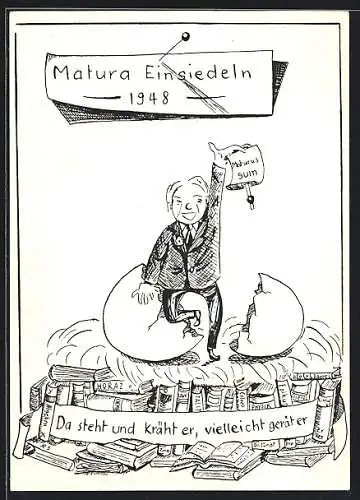 Matura Einsiedeln
1948
Maturus
sum
HORAZ
Da steht und kräht er, vielleicht gerät er